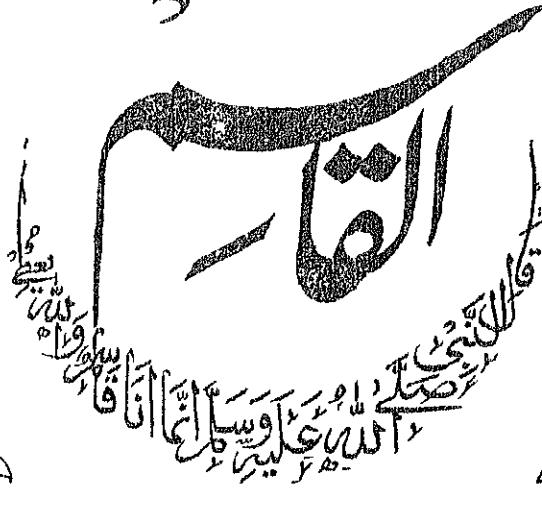 القاسِم
قال النبی صلی الله علیه وسلم انما انا قاسم والله یعطی